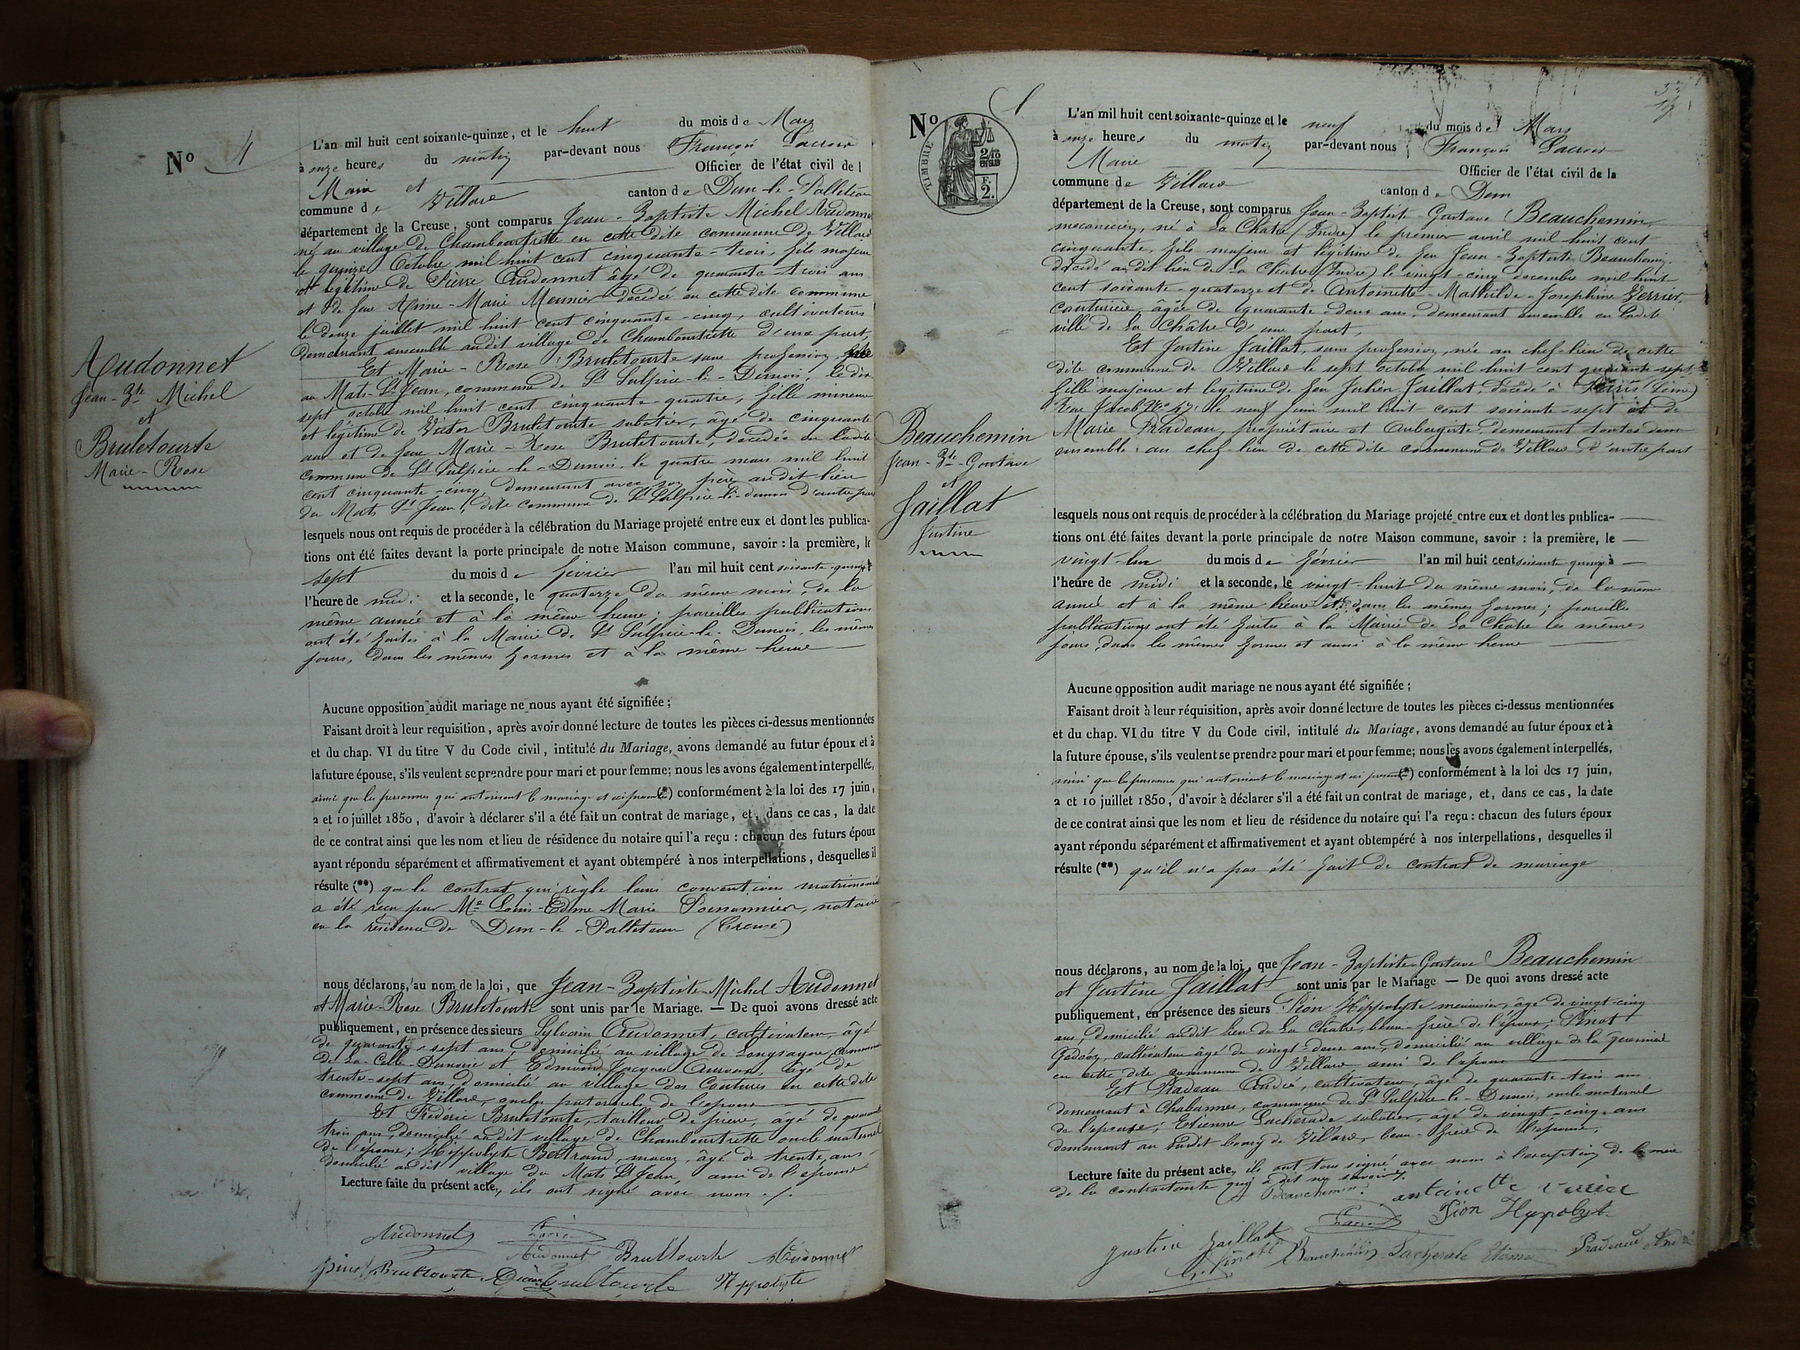 N° 4
Audonnet
Jean-Bte Michel
et
Bruletourte
Marie-Rose
L'an mil huit cent soixante-quinze, et le huit du mois de Mars
à onze heures du matin par-devant nous François Lacroix
Maire et Officier de l'état civil de l
commune de Villard canton de Dun-le-Palleteau
département de la Creuse, sont comparus Jean-Baptiste Michel Audonnet
né au village de Chambourtrette en cette dite commune de Villard
le quinze Octobre mil huit cent cinquante-trois, fils majeur
et légitime de Pierre Audonnet âgé de quarante trois ans
et de feue Anne-Marie Meunier décédée en cette dite commune
le douze juillet mil huit cent cinquante-cinq, cultivateurs
demeurant ensemble audit village de Chambourtrette d'une part
Et Marie-Rose Bruletourte sans profession, née
au Mats-St Jean, commune de St Sulpice-le-Dunois, le dix
sept octobre mil huit cent cinquante-quatre, fille mineure
et légitime de Victor Bruletourte sabotier, âgé de cinquante
ans et de feue Marie-Rose Bruletourte, décédée en ladite
commune de St Sulpice-le-Dunois le quatre mars mil huit
cent cinquante-cinq, demeurant avec son père audit lieu
du Mats St Jean, dite commune de St Sulpice-le-dunois d'autre part
lesquels nous ont requis de procéder à la célébration du Mariage projeté entre eux et dont les publica-
tions ont été faites devant la porte principale de notre Maison commune, savoir : la première, le
sept du mois de février l'an mil huit cent soixante-quinze à
l'heure de midi et la seconde, le quatorze du même mois, de la
même année et à la même heure; pareilles publications
ont été faites à la Mairie de St Sulpice-le-Dunois, les mêmes
jours, dans les mêmes formes et à la même heure
Aucune opposition audit mariage ne nous ayant été signifiée ;
Faisant droit à leur requisition, après avoir donné lecture de toutes les pièces ci-dessus mentionnées
et du chap. VI du titre V du Code civil, intitulé du Mariage, avons demandé au futur époux et à
la future épouse, s'ils veulent se prendre pour mari et pour femme; nous les avons également interpellés,
ainsi que les personnes qui autorisent le mariage et ici présentes (*) conformément à la loi des 17 juin,
2 et 10 juillet 1850, d'avoir à déclarer s'il a été fait un contrat de mariage, et, dans ce cas, la date
de ce contrat ainsi que les nom et lieu de résidence du notaire qui l'a reçu : chacun des futurs époux
ayant répondu séparément et affirmativement et ayant obtempéré à nos interpellations, desquelles il
résulte (**) que le contrat qui règle leurs conventions matrimoniales
a été reçu par Me Louis-Edme Marie notaire
en la résidence de Dun-le-Palleteau (Creuse)
nous déclarons, au nom de la loi, que Jean-Baptiste-Michel Audonnet
et Marie-Rose Bruletourte sont unis par le Mariage. — De quoi avons dressé acte
publiquement, en présence des sieurs Sylvain Audonnet, cultivateur, âgé
de quarante-sept ans domicilié au village de Longsagne, commune
de La Celle Dunoise et Edmond Jacques Audonnet, âgé de
trente-sept ans domicilié au village des Coutures en cette dite
commune de Villard, oncles paternels de l'époux
Et Frédéric Bruletourte, tailleur de pierre, âgé de quarante
trois ans, domicilié audit village de Chambourtrette oncle maternel
de l'épouse; Hippolyte Bertrand, maçon, âgé de trente ans
domicilié audit village du Mats St Jean, ami de l'épouse
Lecture faite du présent acte, ils ont signé avec nous ./.
Audonnet Lacroix
Audonnet Brultourte Audonnet
Brultourte Brultourte Hippolyte
N° 5
TIMBRE
2/10 EN SUS
F. 2.
Beauchemin
Jean-Bte-Gustave
et
Jaillat
Justine
L'an mil huit cent soixante-quinze et le neuf du mois de Mars
à onze heures du matin par-devant nous François Lacroix
Maire Officier de l'état civil de la
commune de Villard canton de Dun
département de la Creuse, sont comparus Jean-Baptiste-Gustave Beauchemin,
mécanicien, né à La Châtre (Indre) le premier avril mil huit cent
cinquante, fils majeur et légitime de feu Jean-Baptiste Beauchemin,
décédé audit lieu de La Châtre (Indre) le vingt-cinq décembre mil huit
cent soixante-quatorze et de Antoinette-Mathilde-Joséphine Verrier,
couturière, âgée de quarante-deux ans, demeurant ensemble en ladite
ville de La Châtre d'une part,
Et Justine Jaillat, sans profession, née au chef-lieu de cette
dite commune de Villard le sept octobre mil huit cent quarante sept,
fille majeure et légitime de feu Julien Jaillat, décédé à Paris (Seine)
Rue Jacob No 47, le neuf juin mil huit cent soixante-sept et de
Marie Pradeau, propriétaire et Aubergiste demeurant toutes deux
ensemble au chef-lieu de cette dite commune de Villard, d'autre part
lesquels nous ont requis de procéder à la célébration du Mariage projeté entre eux et dont les publica-
tions ont été faites devant la porte principale de notre Maison commune, savoir : la première, le
vingt-un du mois de février l'an mil huit cent soixante quinze à
l'heure de midi et la seconde, le vingt-huit du même mois, de la même
année et à la même heure et dans les mêmes formes; pareilles
publications ont été faites à la Mairie de La Châtre les mêmes
jours, dans les mêmes formes et aussi à la même heure
Aucune opposition audit mariage ne nous ayant été signifiée ;
Faisant droit à leur réquisition, après avoir donné lecture de toutes les pièces ci-dessus mentionnées
et du chap. VI du titre V du Code civil, intitulé du Mariage, avons demandé au futur époux et à
la future épouse, s'ils veulent se prendre pour mari et pour femme; nous les avons également interpellés,
ainsi que les personnes qui autorisent le mariage et ici présentes (*) conformément à la loi des 17 juin,
2 et 10 juillet 1850, d'avoir à déclarer s'il a été fait un contrat de mariage, et, dans ce cas, la date
de ce contrat ainsi que les nom et lieu de résidence du notaire qui l'a reçu : chacun des futurs époux
ayant répondu séparément et affirmativement et ayant obtempéré à nos interpellations, desquelles il
résulte (**) qu'il n'a pas été fait de contrat de mariage
nous déclarons, au nom de la loi, que Jean-Baptiste-Gustave Beauchemin
et Justine Jaillat sont unis par le Mariage — De quoi avons dressé acte
publiquement, en présence des sieurs Pion Hippolyte, menuisier, âgé de vingt-cinq
ans, domicilié audit lieu de La Châtre, beau-frère de l'époux; Pinot
cultivateur âgé de vingt-deux ans, domicilié au village de la
en cette dite commune de Villard ami de l'époux
Et Pradeau André, cultivateur, âgé de quarante trois ans
demeurant à Chabannes, commune de St Sulpice-le-Dunois, oncle maternel
de l'épouse; Etienne Lacherade sabotier, âgé de vingt-cinq ans
demeurant au susdit bourg de Villard, beau-frère de l'épouse,
Lecture faite du présent acte, ils ont tous signé avec nous à l'exception de la mère
de la contractante qui a dit ne savoir ./.
Beauchemin antoinette verrier
Lacroix Pion Hypolyte
Justine Jaillat
G. Pinot Beauchemin Lacherade Etienne Pradeau André